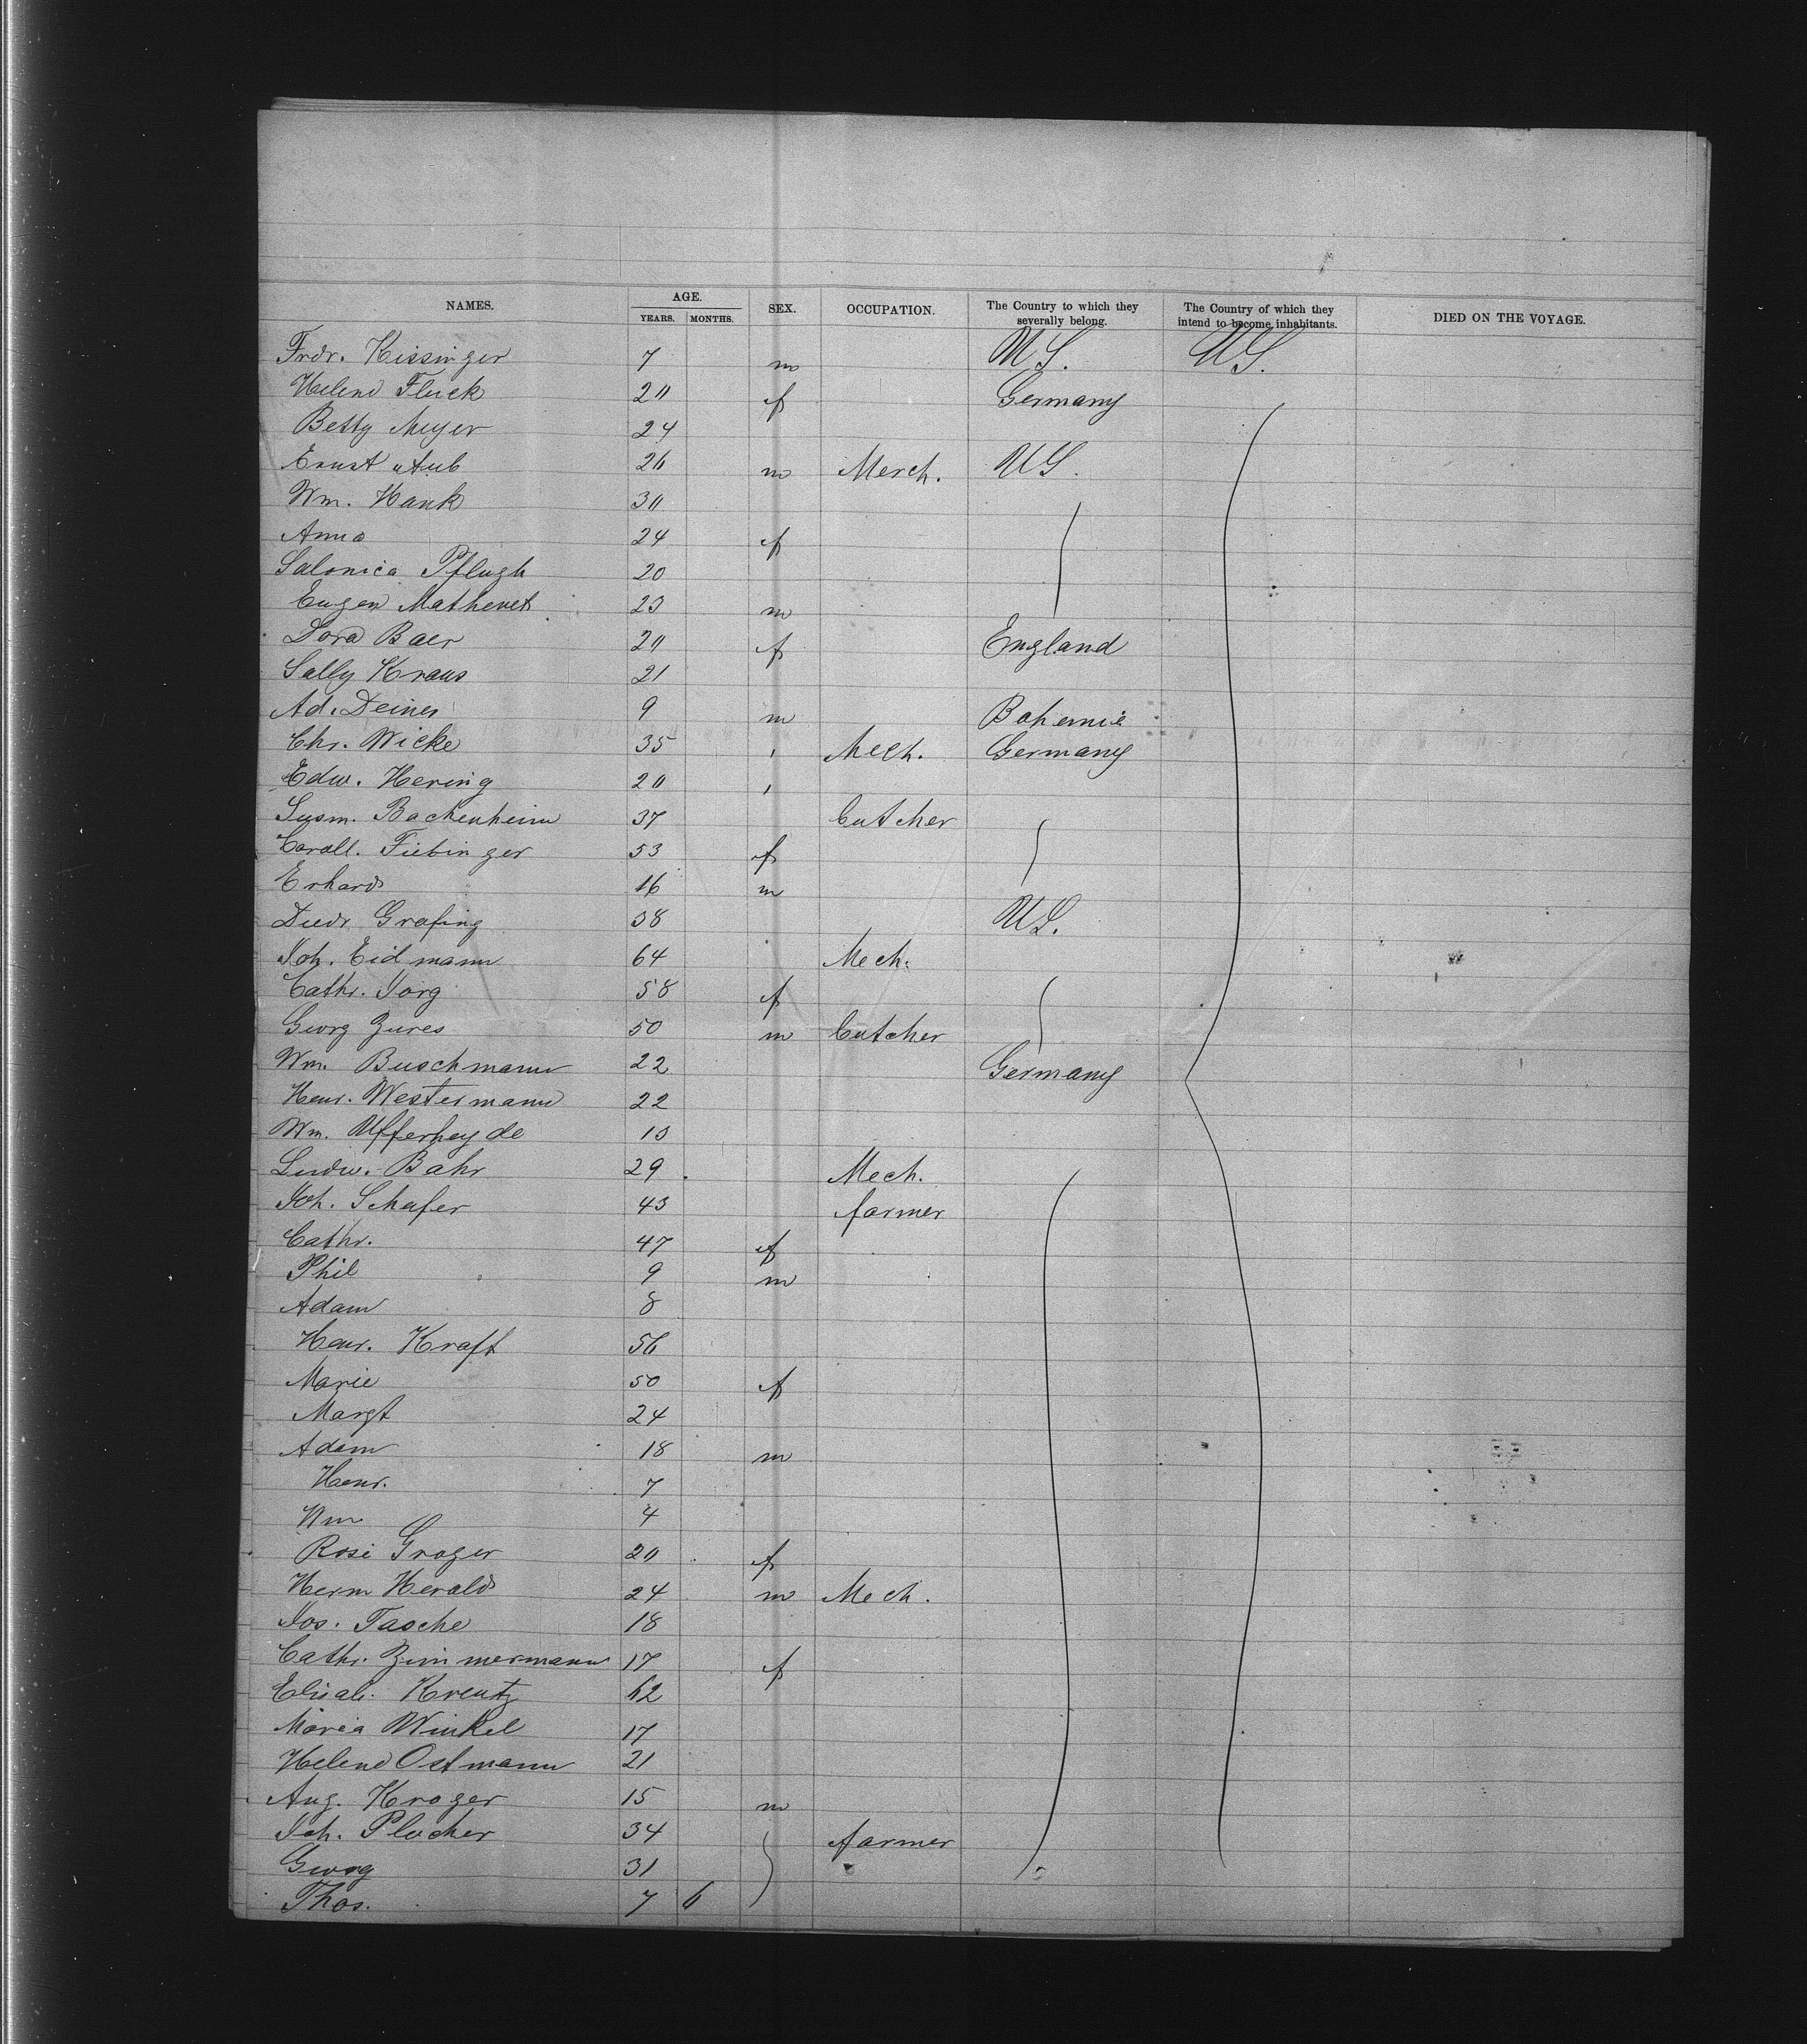 NAMES. AGE. SEX. OCCUPATION. The Country to which they severally belong. The Country of which they intend to become inhabitants. DIED ON THE VOYAGE.
YEARS. MONTHS.
Frdr. Kissinger 7 m U.S. U.S.
Helene Fluck 20 f Germany
Betty Meyer 24
Ernst Aub 26 m Merch. U.S.
Wm. Hank 30
Anna 24 f
Salonica Pflugh 20
Eugen Mathevet 23 m
Dora Baer 20 f England
Sally Kraus 21
Ad. Deines 9 m Bohemie
Chr. Wicke 35 " Mech. Germany
Edw. Hering 20 "
Susm. Bachenheim 37 butcher
Caroll. Fiebinger 53 f
Erhard 16 m
Diedr. Grafing 38 U.S.
Joh. Eidmann 64 Mech.
Cathr. Jorg 58 f
Georg Zures 50 m butcher
Wm. Buschmann 22 Germany
Henr. Westermann 22
Wm. Ufferheyde 13
Ludw. Bahr 29 Mech.
Joh. Schafer 43 farmer
Cathr. 47 f
Phil 9 m
Adam 8
Henr. Kraft 56
Marie 50 f
Margt 24
Adam 18 m
Henr. 7
Wm 4
Rosi Groger 20 f
Herm Herald 24 m Mech.
Jos. Tasche 18
Cathr. Zimmermann 17 f
Elisab. Kreutz 62
Maria Winkel 17
Helene Ostmann 21
Aug. Kroger 15 m
Joh. Plocher 34 farmer
Georg 31
Thos. 7 6